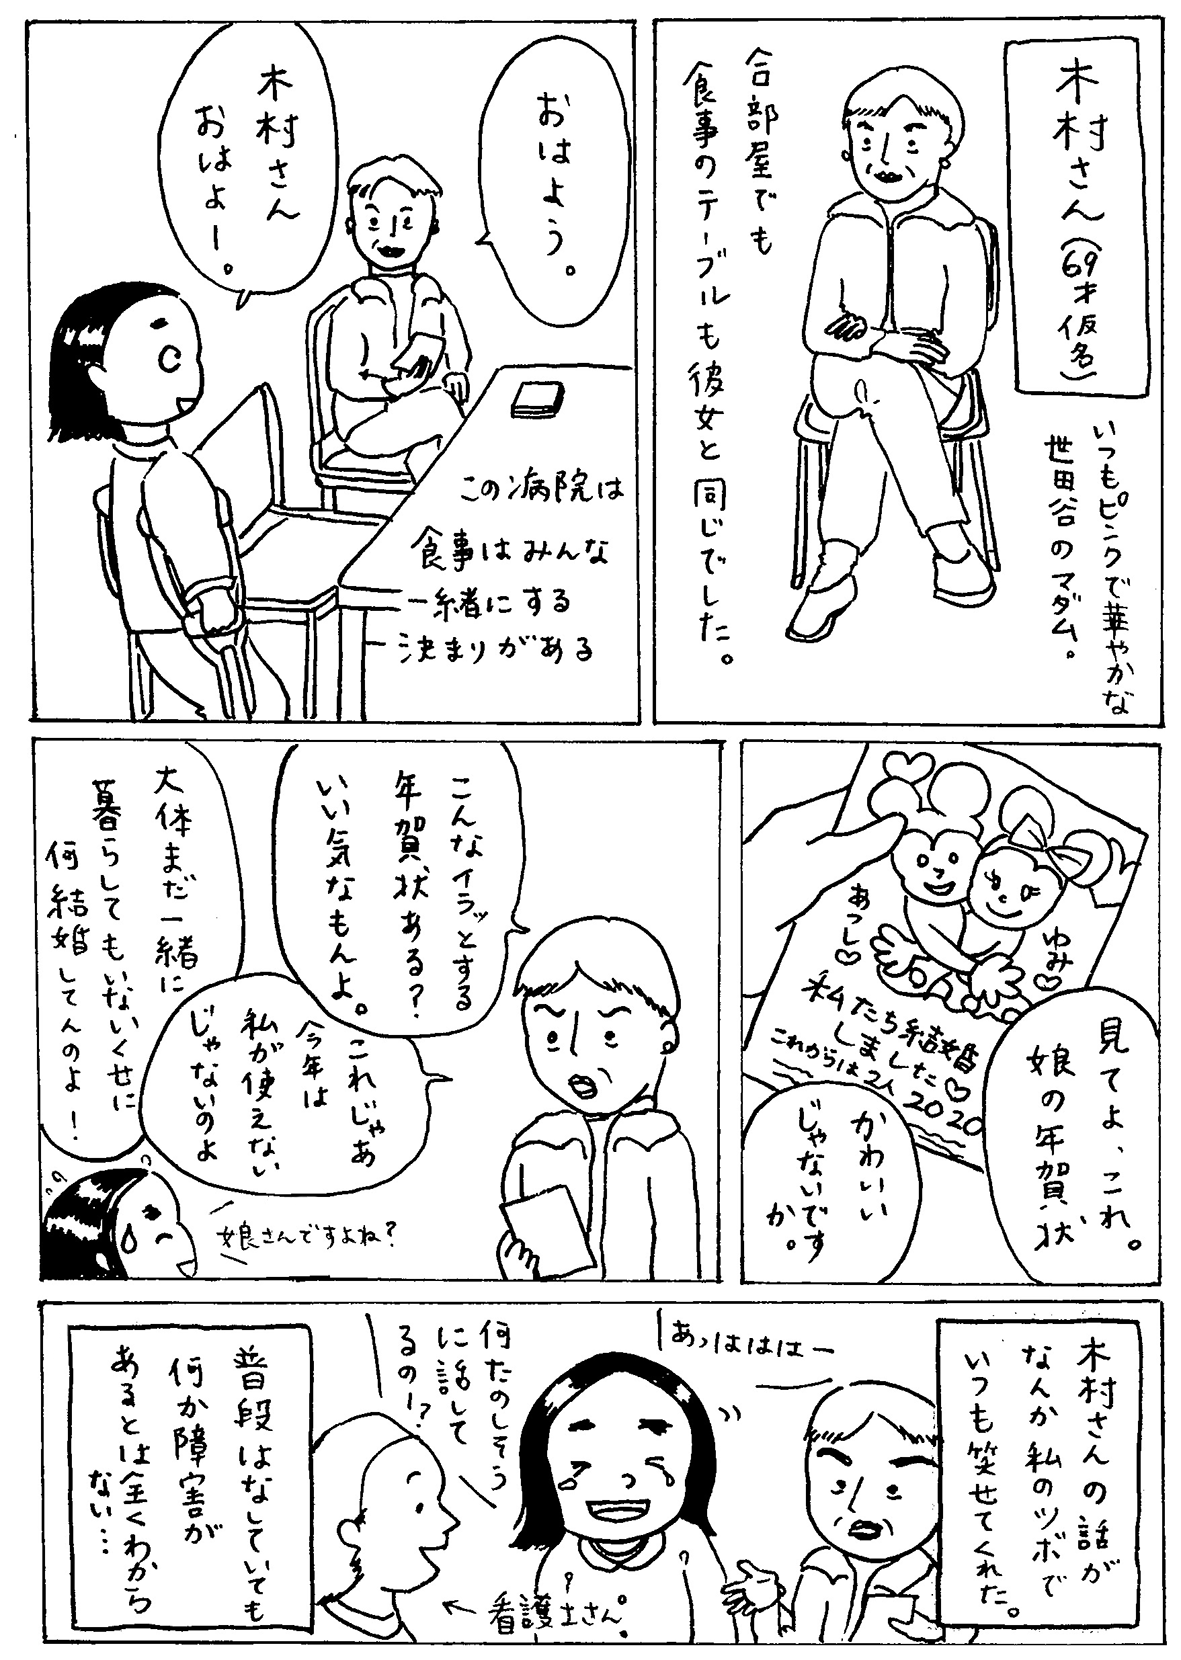 木村さん(69才仮名)
いつもピンクで華やかな
世田谷のマダム。
合部屋でも
食事のテーブルも彼女と同じでした。
おはよう。
木村さん
おはよー。
この病院は
食事はみんな
一緒にする
決まりがある
見てよ、これ。
娘の年賀状
あつし♡
ゆみ♡
私たち結婚
しました♡
これからは2人
2020
かわいい
じゃないです
か。
こんなイラッとする
年賀状ある?
いい気なもんよ。
これじゃあ
今年は
私が使えない
じゃないのよ
大体まだ一緒に
暮らしてもいないくせに
何結婚してんのよ!
娘さんですよね?
木村さんの話が
なんか私のツボで
いつも笑せてくれた。
あっははは―
何たのしそう
に話して
るのー?
看護士さん。
普段はなしていても
何か障害が
あるとは全くわから
ない…